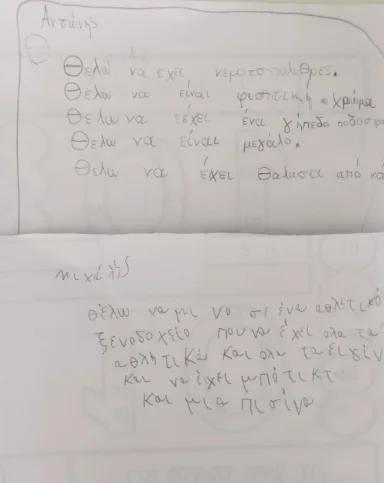 Αντώνης
Θελω να εχει νεροτσουληθρες.
Θελω να είναι φυστική χρώμα
Θελω να έχει ένα γήπεδο ποδοσφα
Θελω να είναι μεγάλο.
Θελω να έχει θαλασα από κά
Μιχάλης
θέλω να μι νο σι ένα αθλιτικό
ξενοδοχείο που να έχει ολα τα
αθλητικα και ολα τα
και να έχει
και μια πισίνα